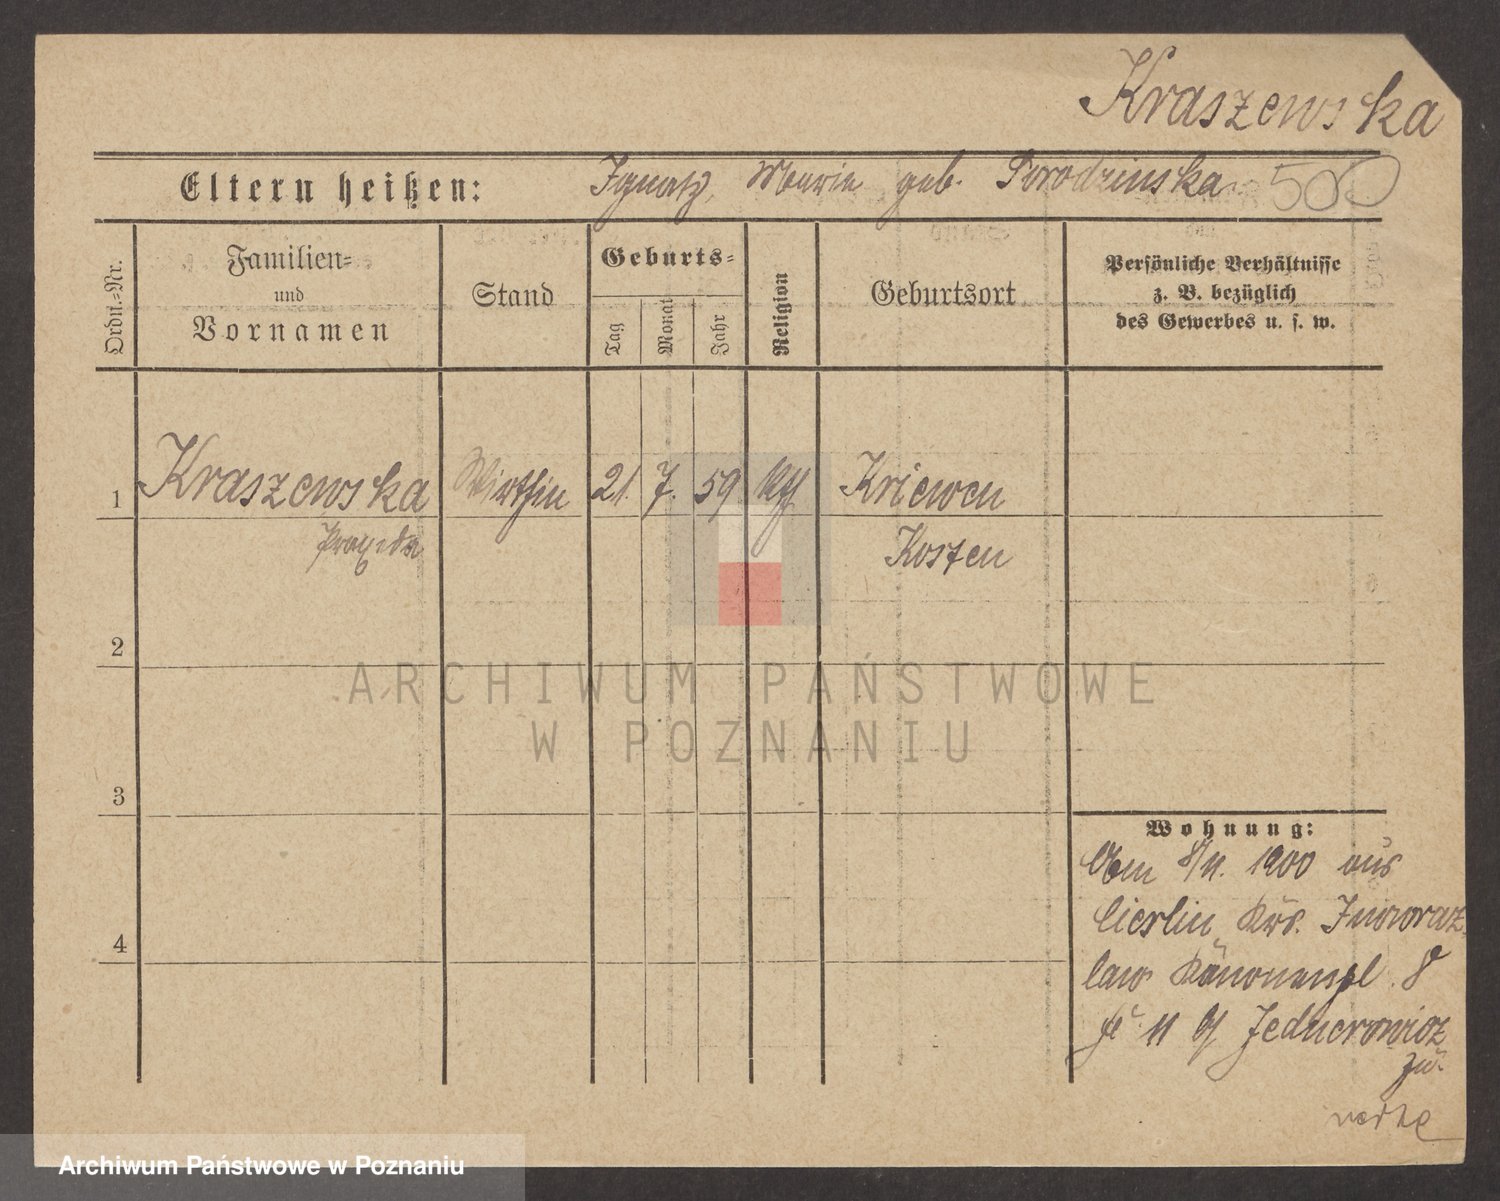 Kraszewska
Eltern heißen: Ignatz, Marie geb. Porodzinska 500
Ordn.-Nr.
Familien-
und
Vornamen
Stand
Geburts-
Tag
Monat
Jahr
Religion
Geburtsort
Persönliche Verhältnisse
z. B. bezüglich
des Gewerbes u. s. w.
1 Kraszewska Wirthin 21. 7. 59 kth Kriewen
Praxeda Kosten
2
3
4
Wohnung:
1900 aus
Cierlin Krs. Inowraz
law Kanonenpl. 8
11 b/
zu.
ARCHIWUM PAŃSTWOWE
W POZNANIU
Archiwum Państwowe w Poznaniu